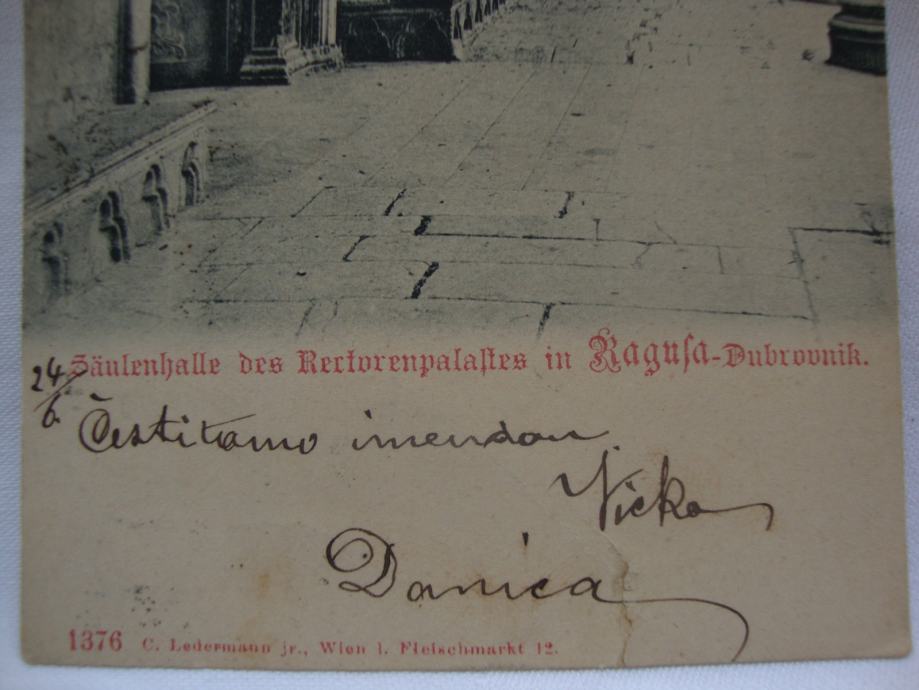 Säulenhalle des Rectorenpalastes in Ragusa-Dubrovnik.
24/6
Čestitamo imendan
Vicko
Danica
1376 C. Ledermann jr., Wien I. Fleischmarkt 12.